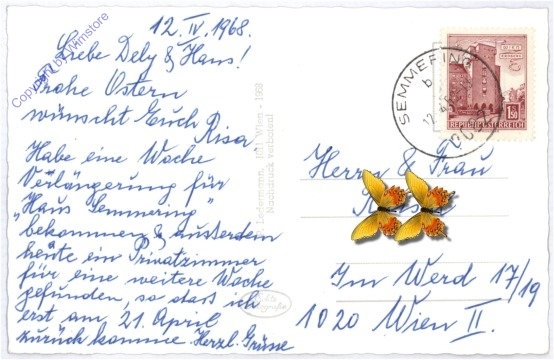 12. IV. 1968.
Liebe Dely & Hans!
Frohe Ostern
wünscht Euch
Risa
Habe eine Woche
Verlängerung für
"Haus Semmering"
bekommen & ausserdem
heute ein Privatzimmer
für eine weitere Woche
gefunden, so daß ich
erst am 21. April
zurück komme. Herzl. Grüsse
Copyright by Wimstore
P. Ledermann, Wien - 1968
Nachdruck verboten!
SEMMERING
WIEN
1.50
REPUBLIK ÖSTERREICH
Herrn & Frau
Im Werd 17/19
1020 Wien II.